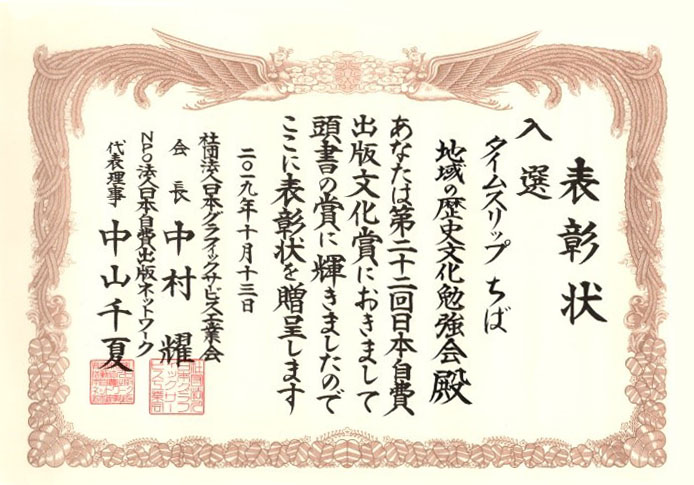 表彰状
入選
タイムスリップ ちば
地域の歴史文化勉強会 殿
あなたは第二十二回日本自費
出版文化賞におきまして
頭書の賞に輝きましたので
ここに表彰状を贈呈します
二〇一九年十月十三日
社団法人日本グラフィックサービス工業会
会長 中村 耀
NPO法人日本自費出版ネットワーク
代表理事 中山千夏